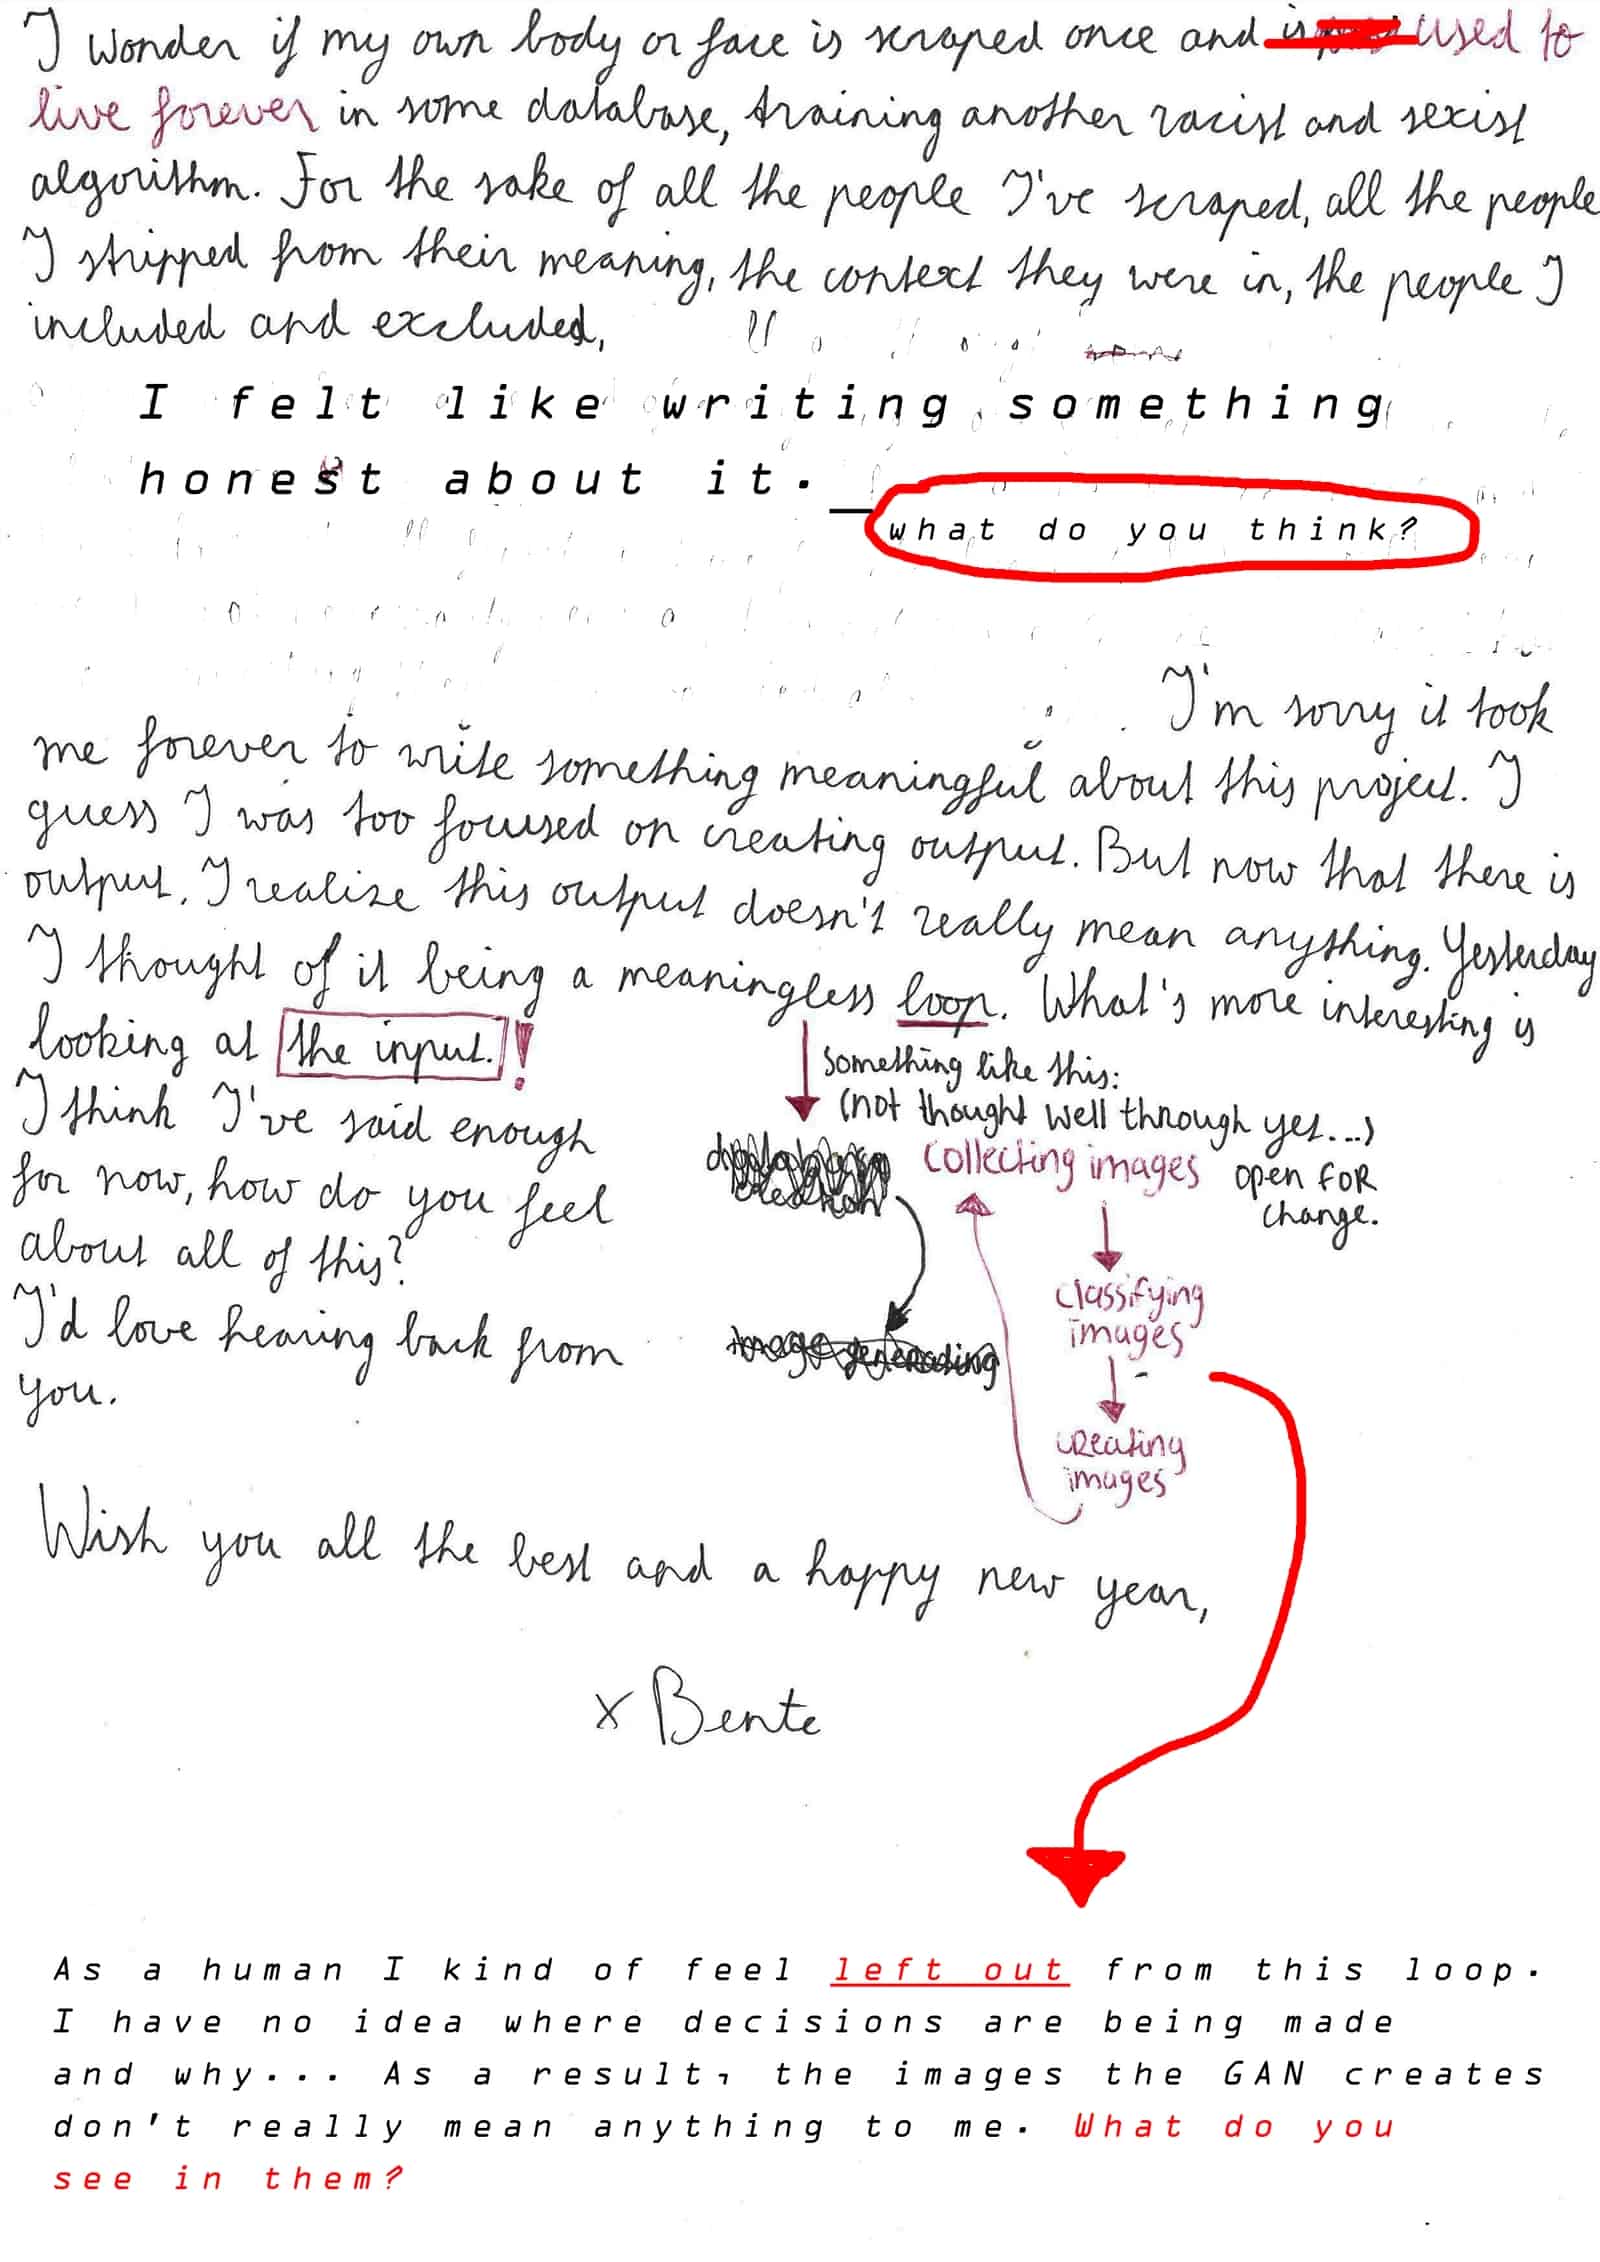 I wonder if my own body or face is scraped once and is used to
live forever in some database, training another racist and sexist
algorithm. For the sake of all the people I've scraped, all the people
I stripped from their meaning, the context they were in, the people I
included and excluded,
I felt like writing something
honest about it._
what do you think?
I'm sorry it took
me forever to write something meaningful about this project. I
guess I was too focused on creating output. But now that there is
output, I realize this output doesn't really mean anything. Yesterday
I thought of it being a meaningless loop. What's more interesting is
looking at the input.!
something like this:
(not thought well through yet...)
I think I've said enough
for now, how do you feel
about all of this?
I'd love hearing back from
you.
collecting images
open FOR
change.
classifying
images
creating
images
image generating
Wish you all the best and a happy new year,
x Bente
As a human I kind of feel left out from this loop.
I have no idea where decisions are being made
and why... As a result, the images the GAN creates
don't really mean anything to me. What do you
see in them?